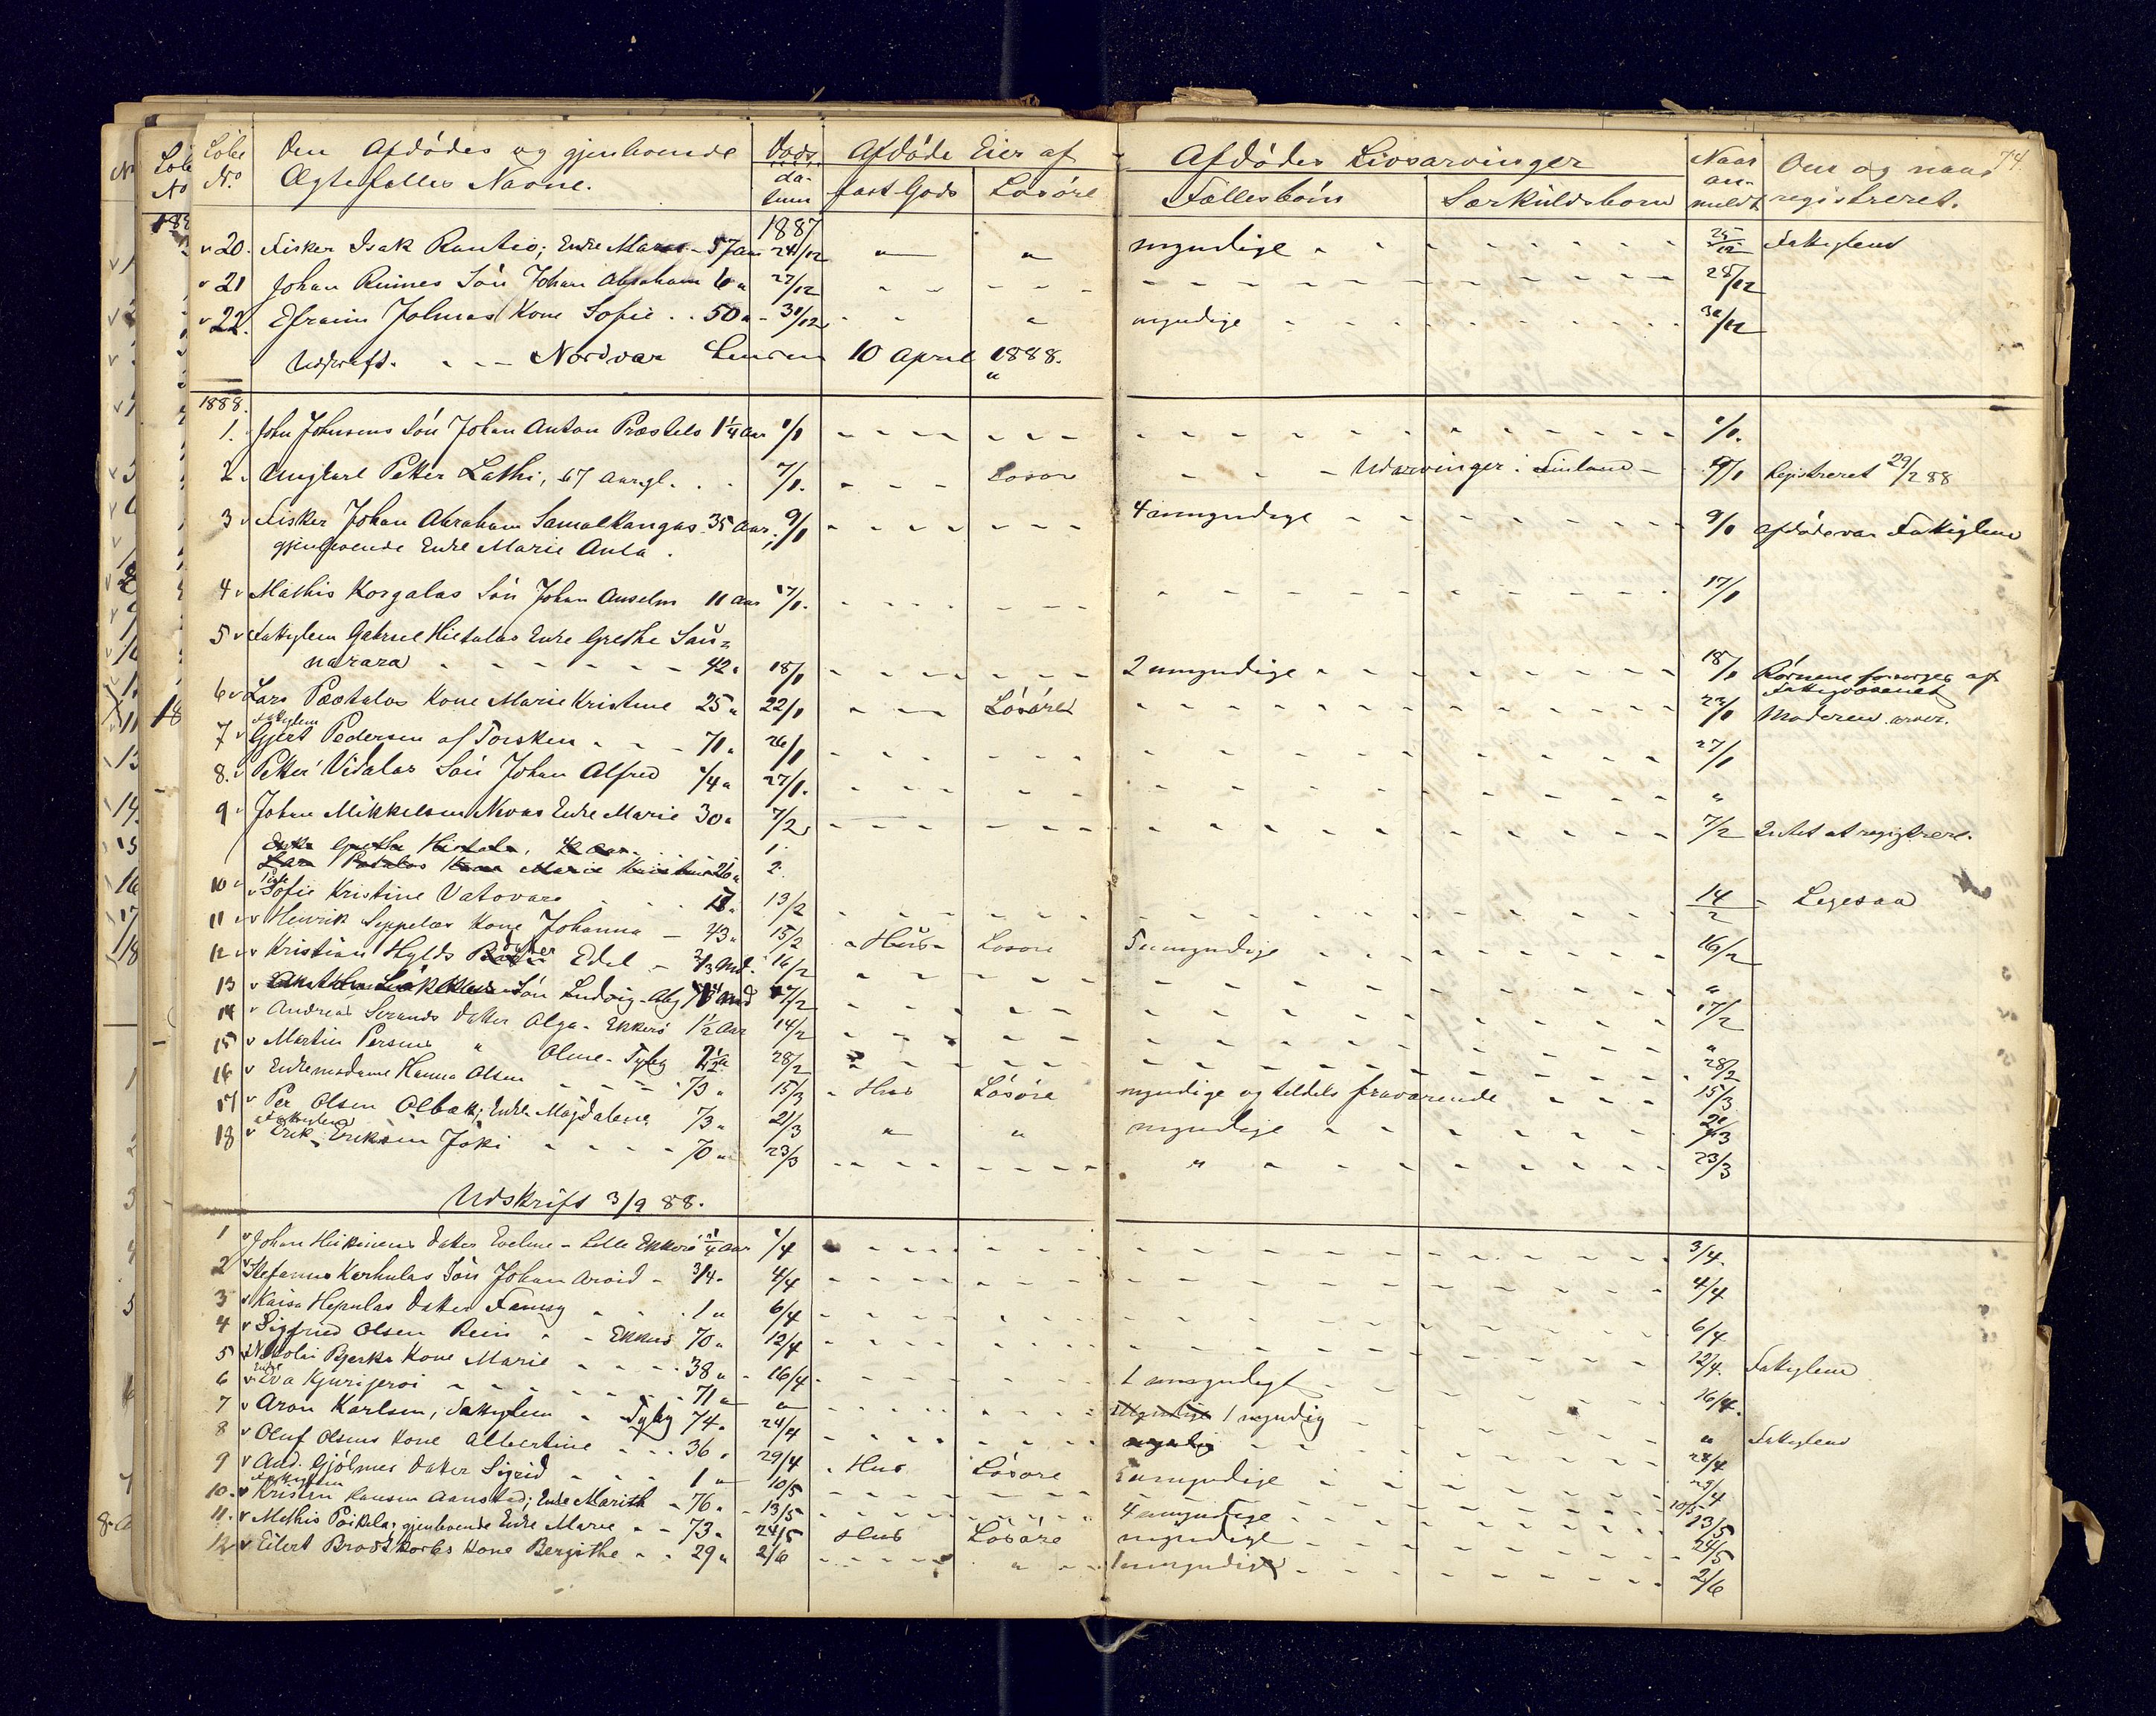 Løbe No. Den Afdødes og gjenlevende Ægtefælles Navne. Døds datum Afdøde Eier af fast Gods Løsøre Afdødes Livsarvinger Fællesbørn Særkuldsbørn Naar anmeldt Om og naar registreret. 74
1887
20. Fisker Isak Rautio; Enke Maria - 57 Aar 24/12 " " myndige 25/12 Fattiglem
21 Johan Rimes Søn Johan Abraham 6 " 27/12 28/12
22. Efraim Jolmas Kone Sofie 50 " 30/12 " myndige 30/12
Udskrift. Nordvar 10 April 1888.
1888.
1. John Johnsens Søn Johan Anton Præstels 1 1/4 Aar 1/1 1/1.
2. Ungkarl Petter Lathi, 67 Aar gl. 7/1. Løsøre Udarvinger i Finland 9/1 Registreret 29/2 88
3 Fisker Johan Abraham Samalkangas 35 Aar. 9/1 4 umyndige 9/1 Afdøde var Fattiglem
gjenlevende Enke Marie Anta.
4 Mathis Korgalas Søn Johan Anselm 11 Aar 17/1. 17/1
5 Fattiglem Gabriel Hietalas Enke Grethe Sau=
narara 42 " 18/1 2 umyndige 18/1 Børnene forsørges af Fattigvæsenet
6 Lars Pætalas Kone Marie Kristine 25 " 22/1 Løsøre 23/1 Moderen arver.
7 Fattiglem Gjert Pedersen af Torsken 71 " 26/1 27/1
8. Petter Vidalas Søn Johan Alfred 1/4 " 27/1. "
9 Johan Mikkelsen Nivas Enke Marie 30 " 7/2 7/2 Intet at registrere.
Enke Grethe Hietala, 42 Aar. 1.
Lars Pætalas Kone Marie Kristine 26 " 2.
10 Pige Sofie Kristine Vatovara 13/2 14/2 Legesaa
11 Henrik Seppelas Kone Johanna 43 " 15/2 Hus Løsøre 5 umyndige 16/2
12 Kristian Hylds Datter Edel 2/3 Md. 16/2 "
13 Søn Ludvig Md 17/2 17/2
14 Andreas Strands Datter Olga - Ekkerø 1 1/2 Aar 14/2 "
15 Martin Persens " Oline - Tyby 28/2 28/2
16 Enkemadame Hanna Olsen 73 " 15/3 Hus Løsøre myndige og tildels fraværende 15/3
17 Per Olsen Olbak; Enke Magdalena 73 " 21/3 " " myndige 21/3
18 Fattiglem Erik Eriksen Joki 70 " 23/3 " 23/3
Udskrift 3/9 88.
1 Johan Heikinens Datter Eveline - Lille Ekkerø 1/4 Aar 1/4 3/4.
2 Stefanus Karhulas Søn Johan Arvid 3/4 " 4/4 4/4
3 Kaisa Hepulas Datter Fanny 1 " 6/4 6/4
4 Sigfried Olsen Rein Ekkerø 70 " 12/4 12/4. Fattiglem
5 Nikolai Bjerka Kone Marie 38 " 16/4 1 umyndigt 16/4.
6 Enke Eva Kjurijervi 71 " " 1 myndig " Fattiglem
7 Aron Karlsen, Fattiglem Tyby 74 " 24/4 28/4
8 Oluf Olsens Kone Albertine 36 " 29/4 Hus Løsøre umyndige 29/4
9 And. Gjølmes Datter Sigrid 1 " 10/5 10/5
10. Fattiglem Kristen Hansen Aanstad; Enke Marith 76 " 13/5 4 umyndige 13/5
11. Mathis Poikela; gjenlevende Enke Marie 73 " 24/5 Hus Løsøre myndige 24/5
12 Eilert Brodtkorbs Kone Bergithe 29 " 2/6 " 1 umyndigt 2/6